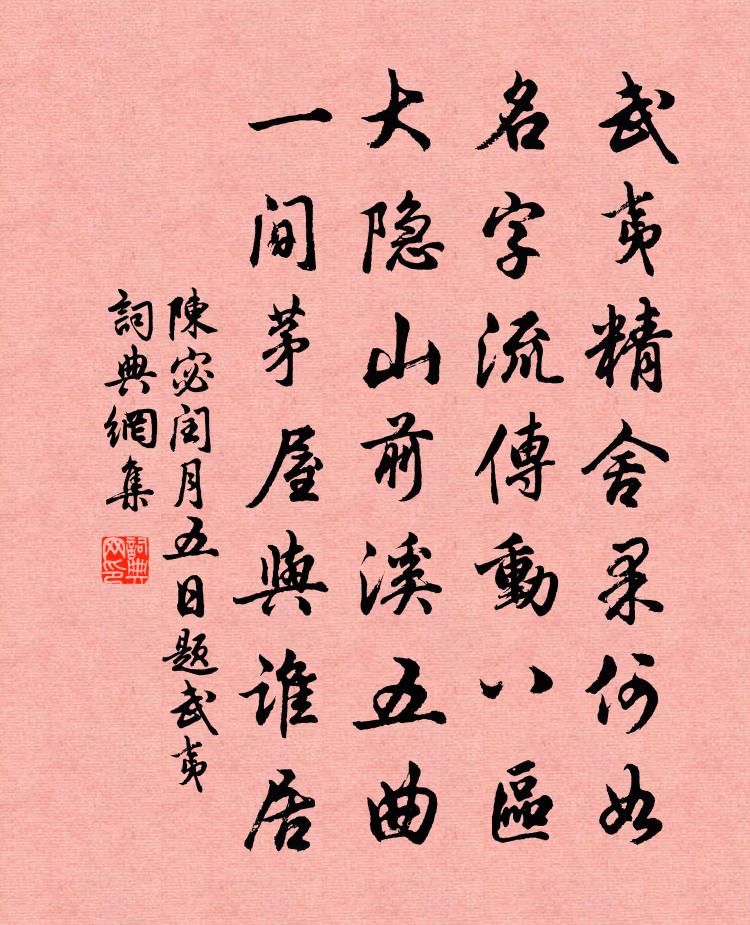 武夷精舍果何如
名字流傳動八區
大隐山前溪五曲
一间茅屋與谁居
陳宓闰月五日题武夷
詞典網集
詞典網印